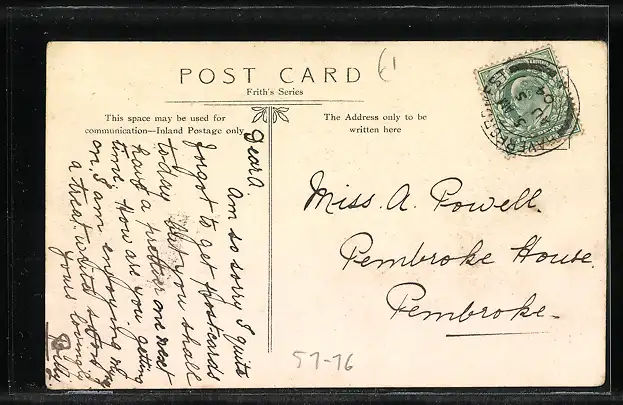 POST CARD
Frith's Series
This space may be used for
communication—Inland Postage only
The Address only to be
written here
Dear A.
Am so sorry I quite
forgot to get postcards
today but you shall
have a prettier one next
time. How are you getting
on. I am enjoying my
a treat.
Yours lovingly
Miss. A. Powell.
Pembroke House.
Pembroke.
57-76